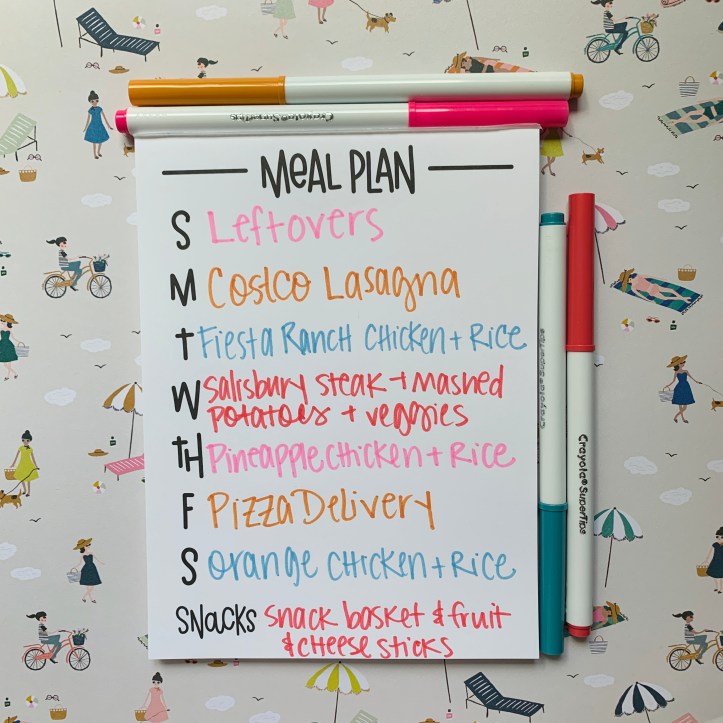 Crayola SuperTips
MEAL PLAN
S Leftovers
M Costco Lasagna
T Fiesta Ranch Chicken + Rice
W Salisbury Steak + Mashed
potatoes + veggies
TH Pineapple Chicken + Rice
F Pizza Delivery
S Orange Chicken + Rice
SNACKS Snack basket & fruit
& cheese sticks
Crayola® SuperTips
Crayola® SuperTips